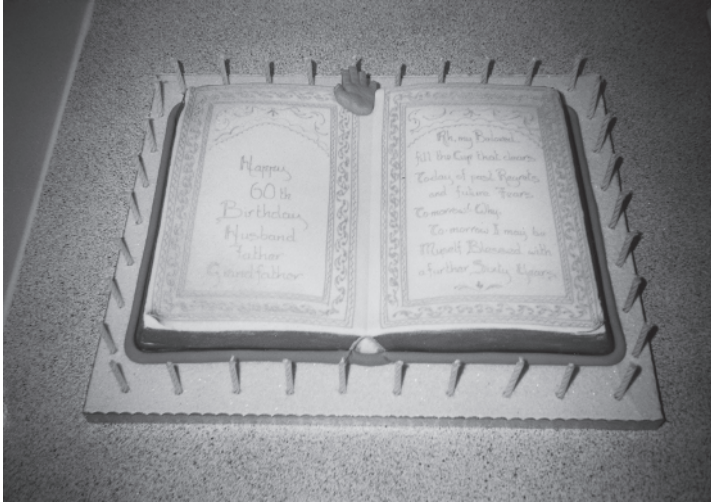 Happy
60th
Birthday
Husband
Father
Grandfather
Ah, my Beloved
fill the Cup that clears
Today of past Regrets
and future Fears
Tomorrow! Why,
To-morrow I may be
Myself Blessed with
a further Sixty Years.